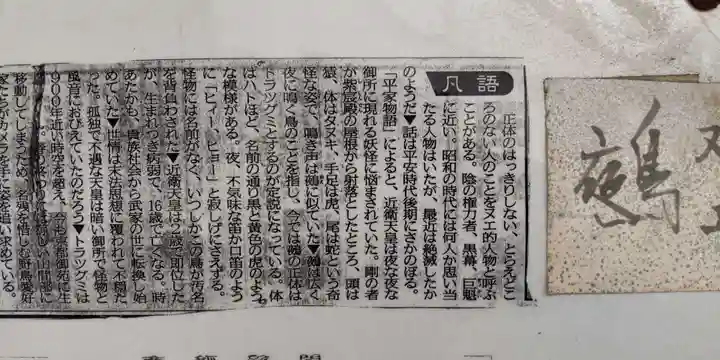 凡語
正体のはっきりしない、とらえどこ
ろのない人のことをヌエ的人物と呼ぶ
ことがある。陰の権力者、黒幕、巨魁
に近い。昭和の時代には何人か思い当
たる人物はいたが、最近は絶滅したか
のようだ▼話は平安時代後期にさかのぼる。
「平家物語」によると、近衛天皇は夜な夜な
御所に現れる妖怪に悩まされていた。剛の者
が紫宸殿の屋根から射落としたところ、頭は
猿、体はタヌキ、手足は虎、尾は蛇という奇
怪な姿で、鳴き声は鵺に似ていた▼鵺は広く
夜に鳴く鳥のことを指し、今では鵺の正体は
トラツグミとするのが定説になっている。体
はハトほど、名前の通り黒と黄色の虎のよう
な模様がある。夜、不気味な笛か口笛のよう
に「ヒィー、ヒョー」と寂しげにさえずる。
怪物には名前がなく、いつしかこの鳥が汚名
を背負わされた▼近衛天皇は2歳で即位した
が、生まれつき病弱で、16歳で亡くなる。時
あたかも、貴族社会から武家の世に転換し始
めていた▼世情は末法思想に覆われて不穏だ
った。孤独で不遇な天皇は暗い御所で怪物と
風音におびえていたのだろう▼トラツグミは
900年近い時空を超え、今も京都御苑に生
移動してしまうため、名残を惜しむ野鳥愛好
家たちがカメラを手に姿を追い求めている。
鵺